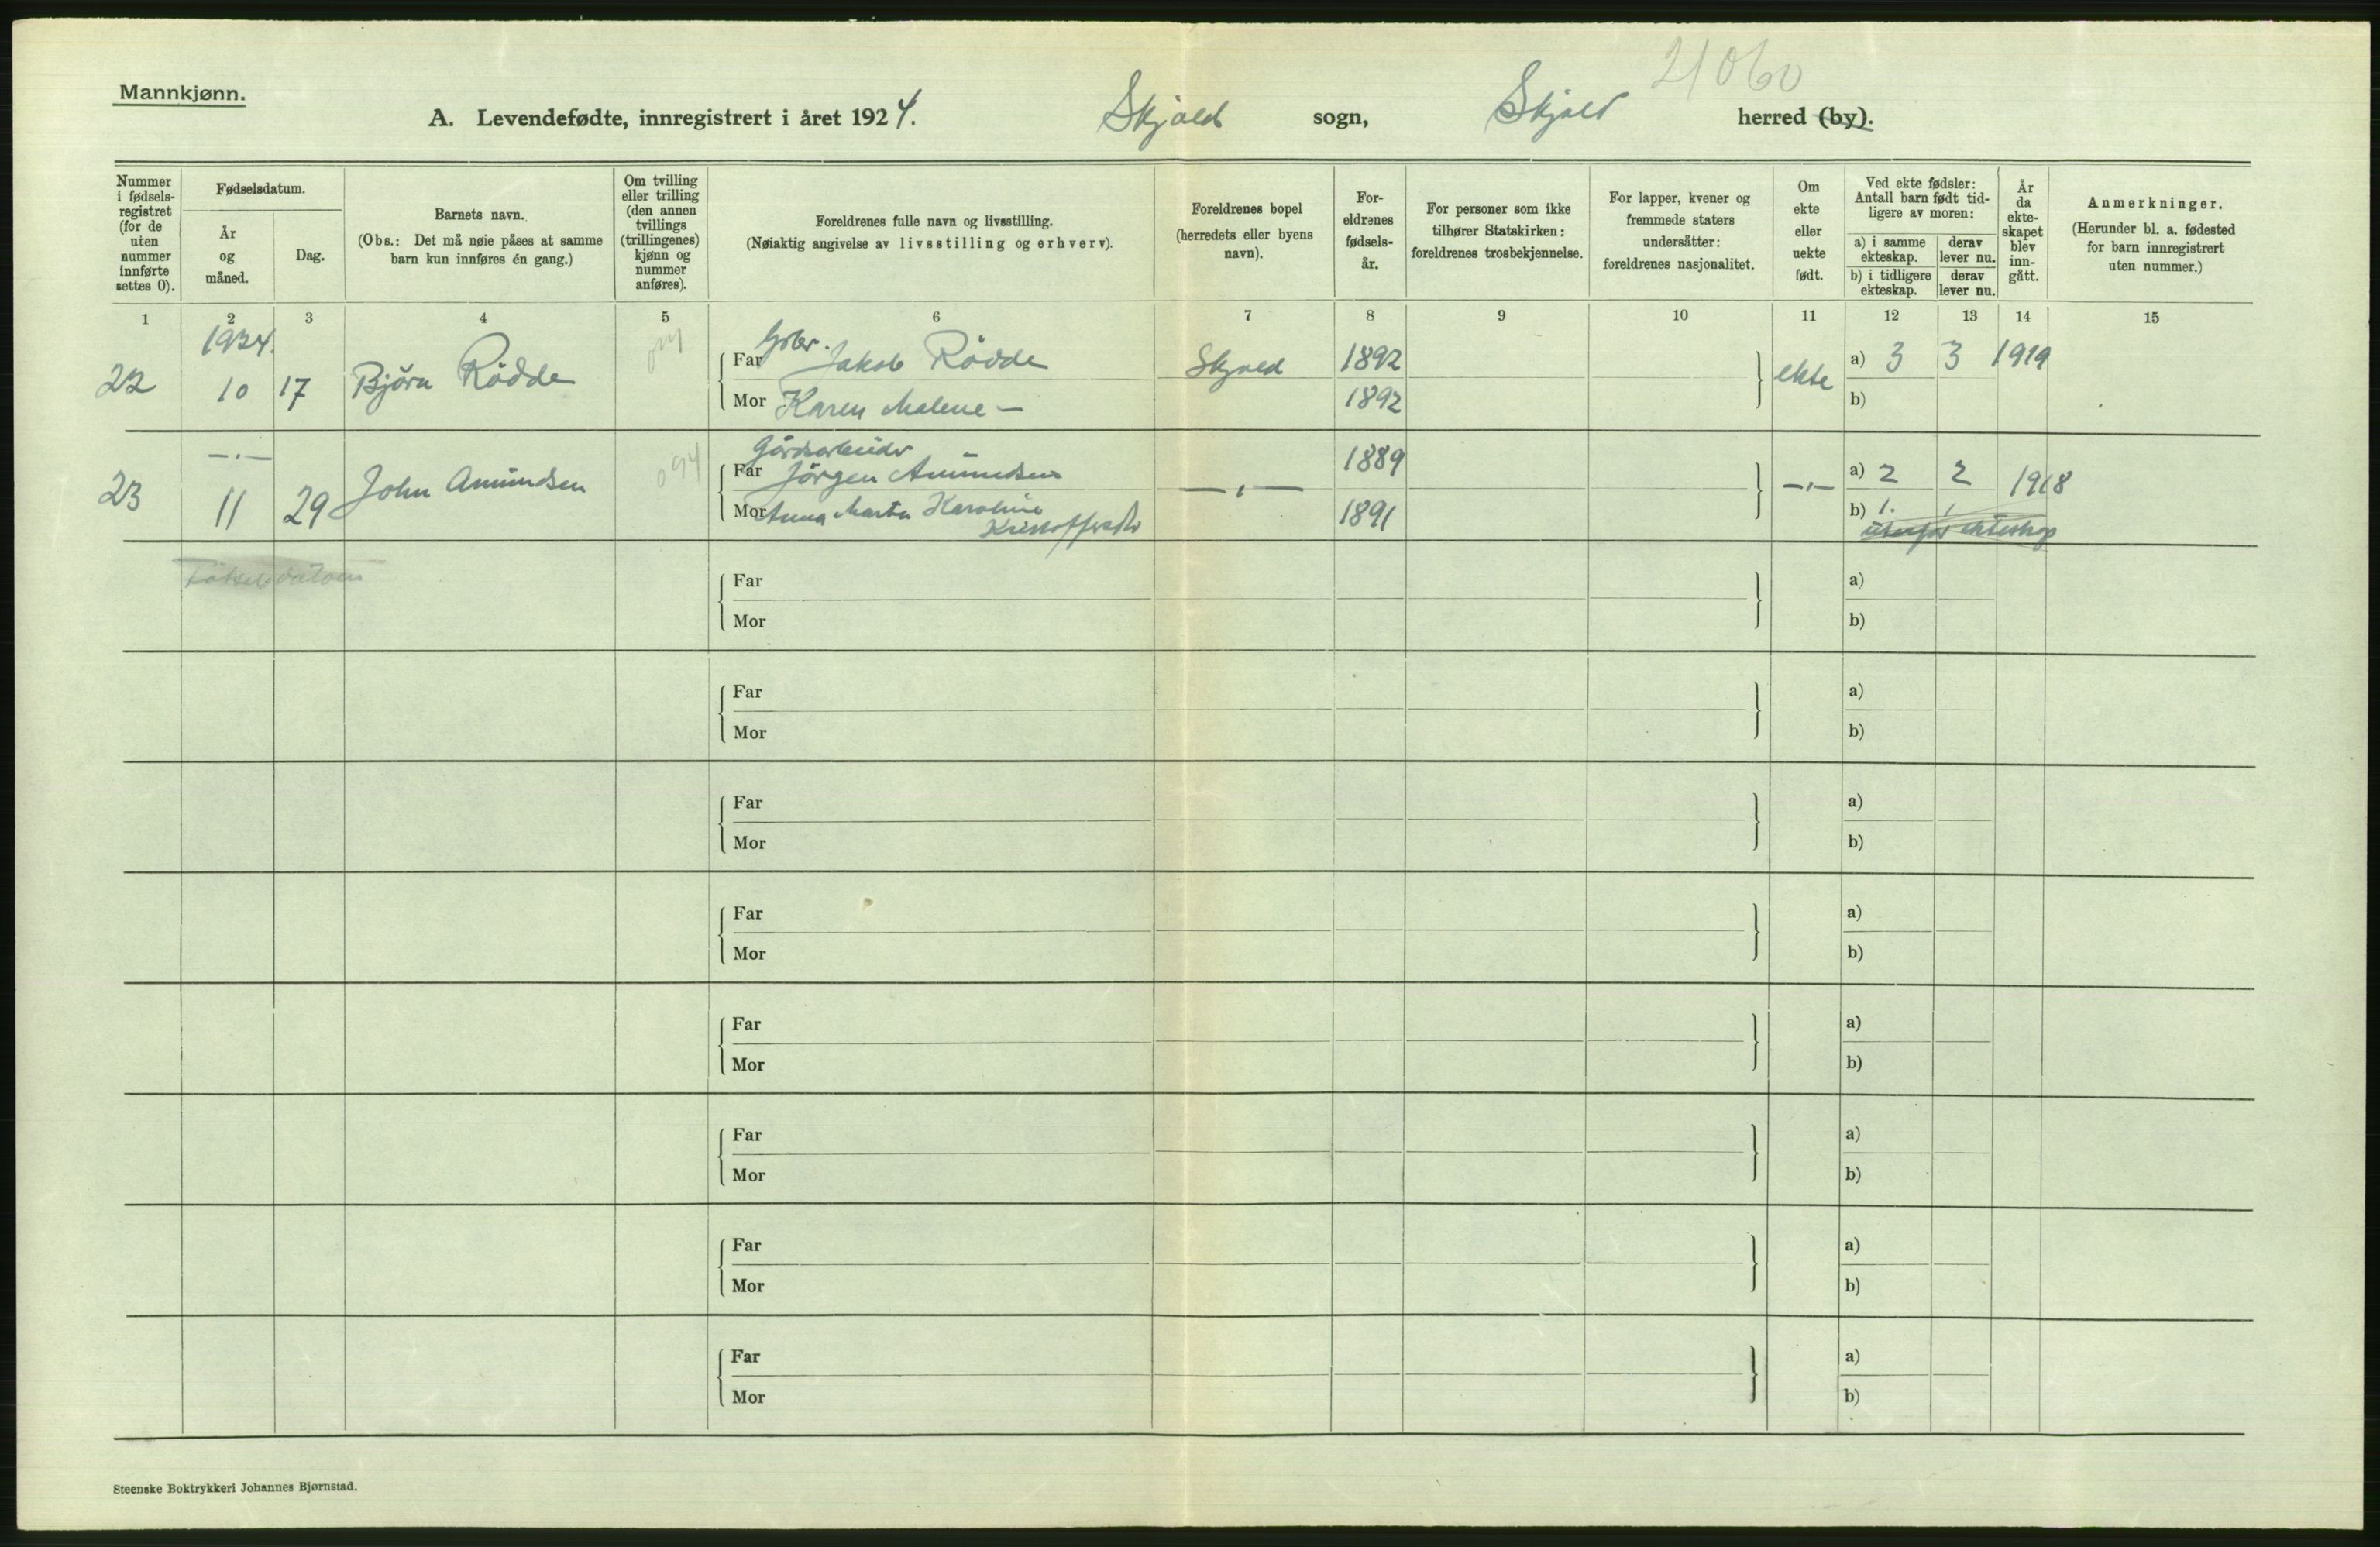 21060
Mannkjønn.
A. Levendefødte, innregistrert i året 1924. Skjold sogn, Skjold herred (by).
Nummer i fødselsregistret (for de uten nummer innførte settes 0).
Fødselsdatum.
År og måned.
Dag.
Barnets navn.
(Obs.: Det må nøie påses at samme barn kun innføres én gang.)
Om tvilling eller trilling (den annen tvillings (trillingenes) kjønn og nummer anføres).
Foreldrenes fulle navn og livsstilling.
(Nøiaktig angivelse av livsstilling og erhverv).
Foreldrenes bopel (herredets eller byens navn).
Foreldrenes fødselsår.
For personer som ikke tilhører Statskirken: foreldrenes trosbekjennelse.
For lapper, kvener og fremmede staters undersåtter: foreldrenes nasjonalitet.
Om ekte eller uekte født.
Ved ekte fødsler: Antall barn født tidligere av moren:
a) i samme ekteskap. derav lever nu.
b) i tidligere ekteskap. derav lever nu.
År da ekteskapet blev inngått.
Anmerkninger.
(Herunder bl. a. fødested for barn innregistrert uten nummer.)
1 2 3 4 5 6 7 8 9 10 11 12 13 14 15
1924.
22 10 17 Björn Rödde
Far Gbr. Jakob Rödde Skjold 1892 ekte a) 3 3 1919
Mor Karen Malene — 1892 b)
—"—
23 11 29 John Amundsen 094
Gårdsarbeider
Far Jörgen Amundsen —"— 1889 —"— a) 2 2 1918
Mor Anna Marta Karoline 1891 b) 1. 1
Kristoffersdtr
utenfor ekteskap
Födselsdatoen
Far a)
Mor b)
Far a)
Mor b)
Far a)
Mor b)
Far a)
Mor b)
Far a)
Mor b)
Far a)
Mor b)
Far a)
Mor b)
Far a)
Mor b)
Steenske Boktrykkeri Johannes Bjørnstad.